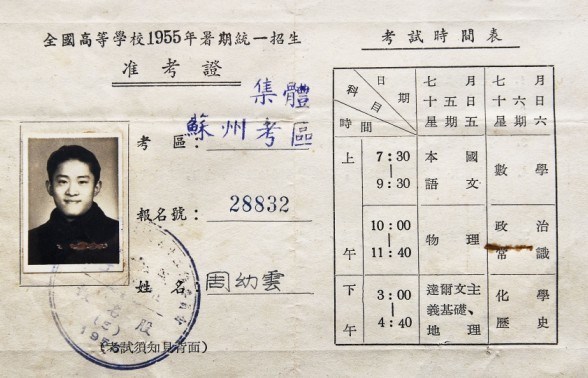 全國高等學校1955年暑期統一招生
准考證
集體
考區: 蘇州考區
報名號: 28832
姓名: 周幼雲
(考試須知見背面)
考試時間表
日期 科目 時間
七月十五日星期五
七月十六日星期六
上午
7:30
9:30
本國語文
數學
10:00
11:40
物理
政治常識
下午
3:00
4:40
達爾文主義基礎、地理
化學
歷史